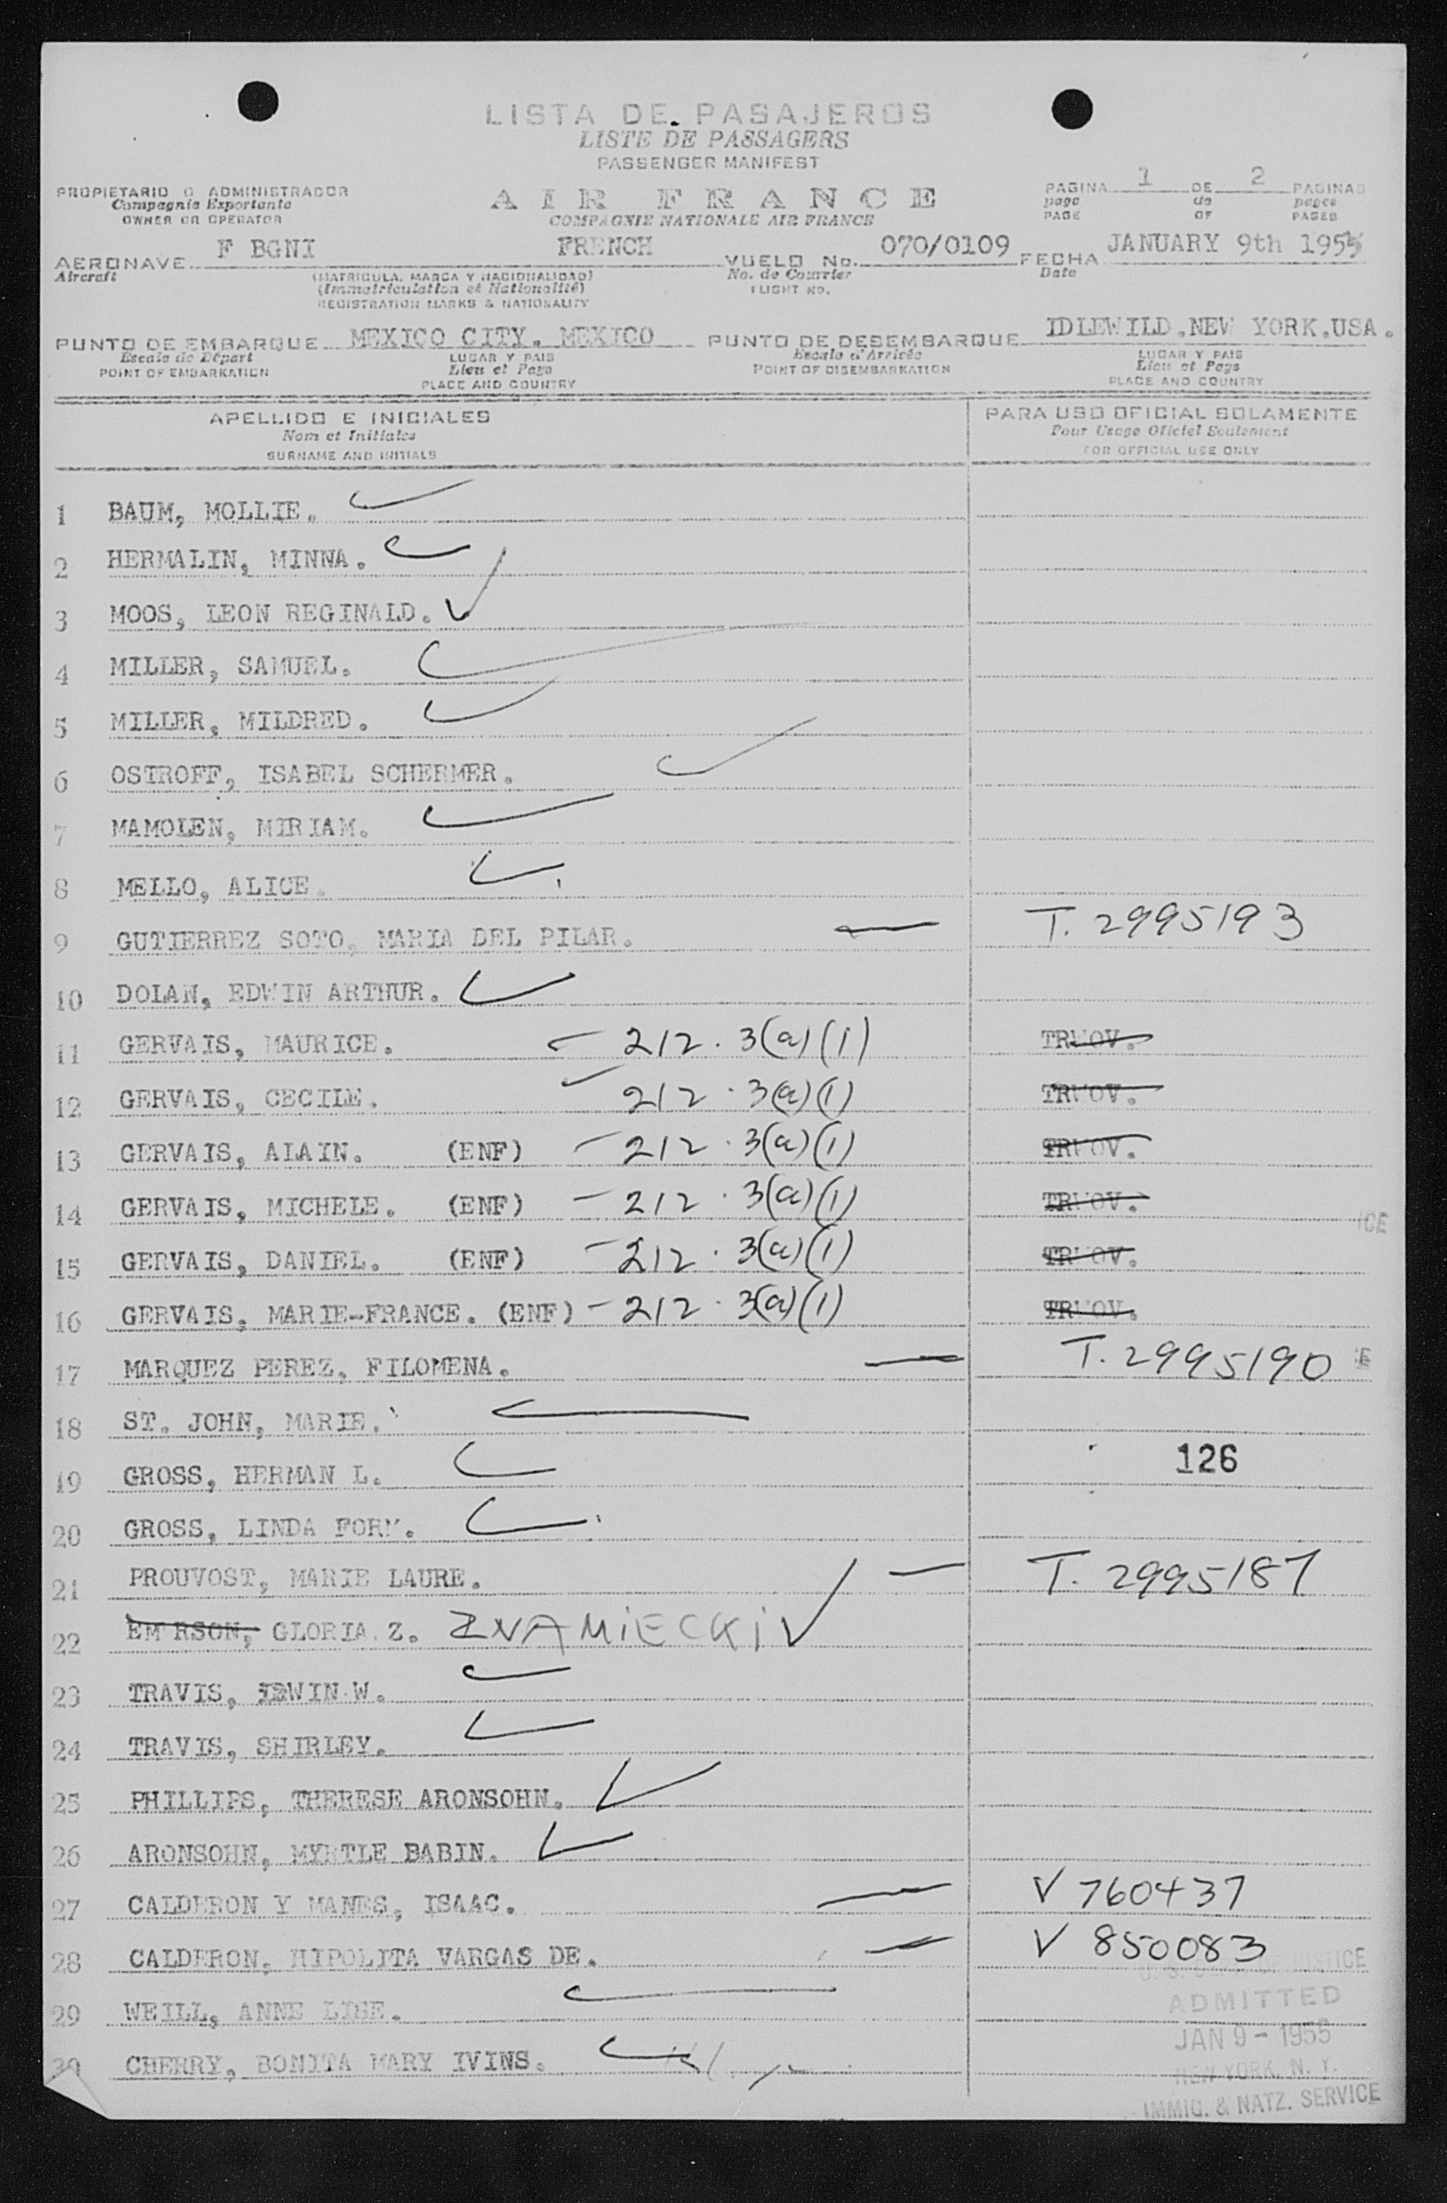 LISTA DE PASAJEROS
LISTE DE PASSAGERS
PASSENGER MANIFEST
PROPIETARIO O ADMINISTRADOR
Compagnie Exportante
OWNER OR OPERATOR
AIR FRANCE
COMPAGNIE NATIONALE AIR FRANCE
PAGINA 1 DE 2 PAGINAS
page de pages
PAGE OF PAGES
AERONAVE F BGNI FRENCH VUELO No. 070/0109 FECHA JANUARY 9th 1955
Aircraft (MATRICULA, MARCA Y NACIONALIDAD) No. de Courrier Date
(Immatriculation et Nationalité) FLIGHT NO.
REGISTRATION MARKS & NATIONALITY
PUNTO DE EMBARQUE MEXICO CITY. MEXICO PUNTO DE DESEMBARQUE IDLEWILD,NEW YORK,USA.
Escale de Départ LUGAR Y PAIS Escale d'Arrivée LUGAR Y PAIS
POINT OF EMBARKATION Lieu et Pays POINT OF DISEMBARKATION Lieu et Pays
PLACE AND COUNTRY PLACE AND COUNTRY
APELLIDO E INICIALES PARA USO OFICIAL SOLAMENTE
Nom et Initiales Pour Usage Officiel Seulement
SURNAME AND INITIALS FOR OFFICIAL USE ONLY
1 BAUM, MOLLIE.
2 HERMALIN, MINNA.
3 MOOS, LEON REGINALD.
4 MILLER, SAMUEL.
5 MILLER, MILDRED.
6 OSTROFF, ISABEL SCHERMER.
7 MAMOLEN, MIRIAM.
8 MELLO, ALICE.
9 GUTIERREZ SOTO, MARIA DEL PILAR. T. 2995193
10 DOLAN, EDWIN ARTHUR.
11 GERVAIS, MAURICE. 212.3(a)(1) TRWOV.
12 GERVAIS, CECILE. 212.3(a)(1) TRWOV.
13 GERVAIS, ALAIN. (ENF) 212.3(a)(1) TRWOV.
14 GERVAIS, MICHELE. (ENF) 212.3(a)(1) TRWOV.
15 GERVAIS, DANIEL. (ENF) 212.3(a)(1) TRWOV.
16 GERVAIS, MARIE-FRANCE. (ENF) 212.3(a)(1) TRWOV.
17 MARQUEZ PEREZ, FILOMENA. T. 2995190
18 ST. JOHN, MARIE.
19 GROSS, HERMAN L. 126
20 GROSS, LINDA
21 PROUVOST, MARIE LAURE. T. 2995187
22 EMERSON, GLORIA Z. ZNAMIECKI
23 TRAVIS, W.
24 TRAVIS, SHIRLEY.
25 PHILLIPS, THERESE ARONSOHN.
26 ARONSOHN, MYRTLE BABIN.
27 CALDERON Y MANES, ISAAC. V 760437
28 CALDERON, HIPOLITA VARGAS DE. V 850083
29 WEILL, ANNE LISE.
30 CHERRY, BONITA MARY IVINS.
ADMITTED
JAN 9 - 1955
NEW YORK, N. Y.
IMMIG. & NATZ. SERVICE